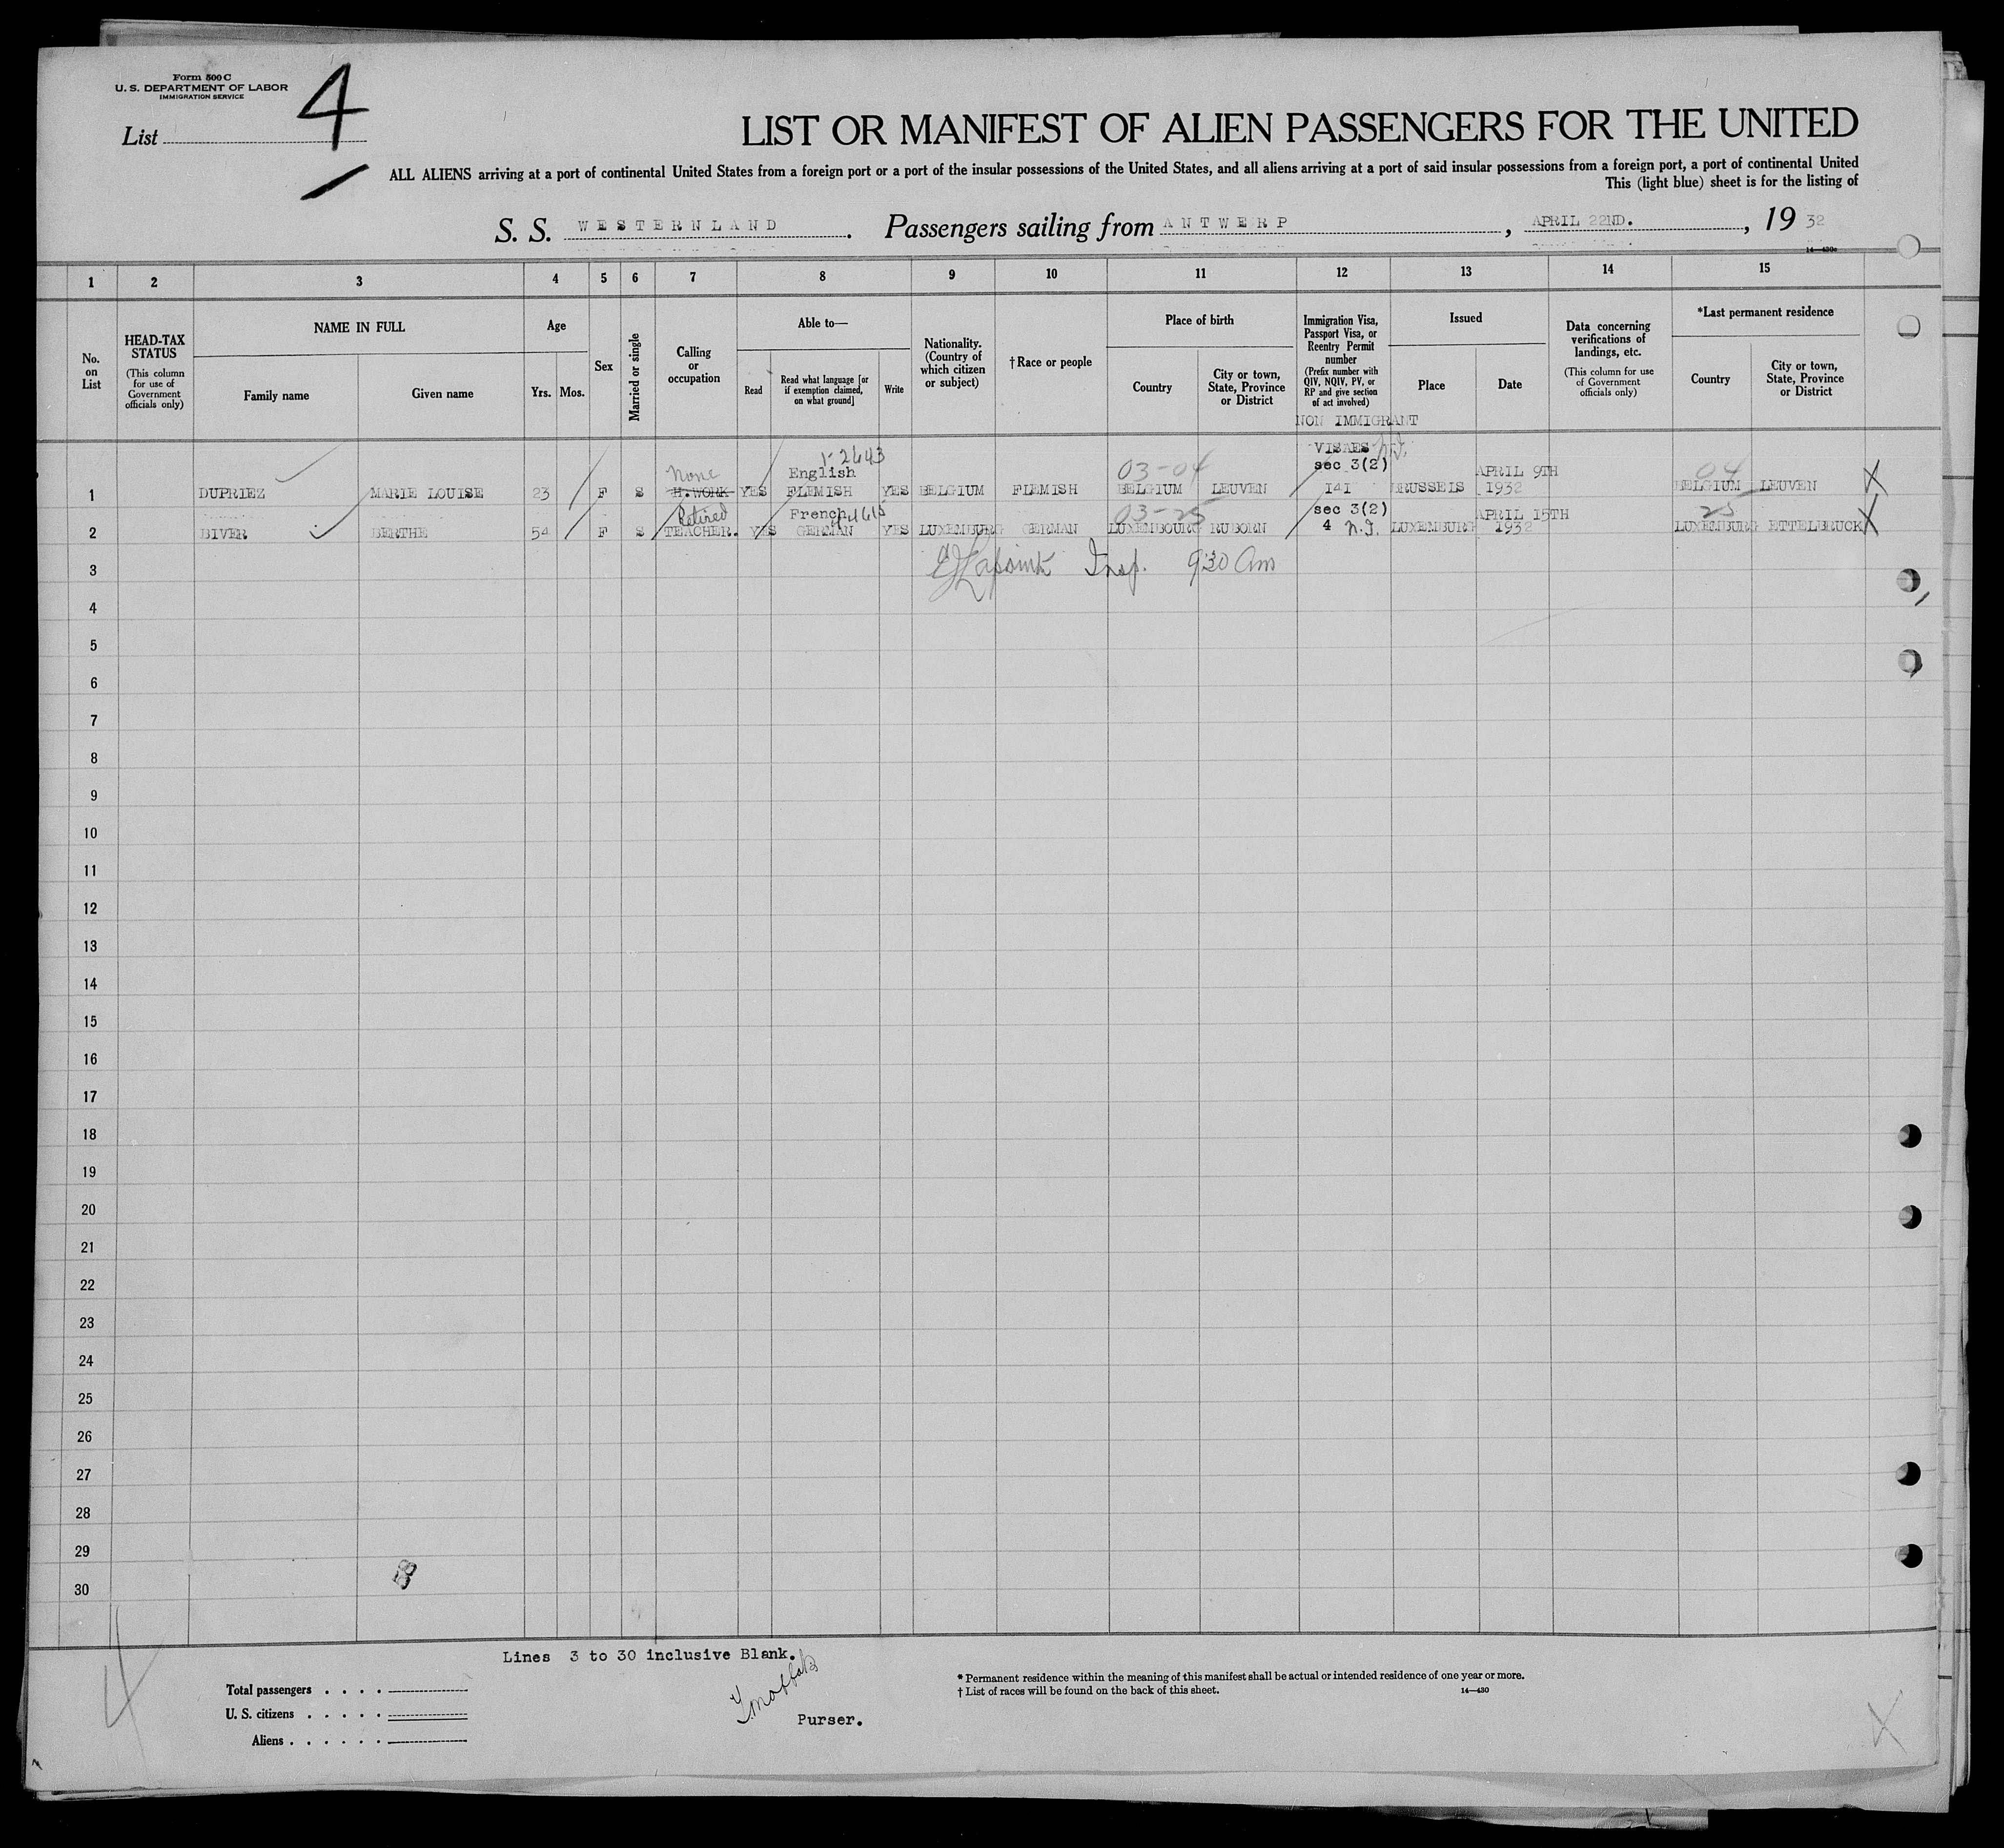 Form 500 C
U. S. DEPARTMENT OF LABOR
IMMIGRATION SERVICE
List 4
LIST OR MANIFEST OF ALIEN PASSENGERS FOR THE UNITED
ALL ALIENS arriving at a port of continental United States from a foreign port or a port of the insular possessions of the United States, and all aliens arriving at a port of said insular possessions from a foreign port, a port of continental United
This (light blue) sheet is for the listing of
S. S. WESTERNLAND. Passengers sailing from ANTWERP, APRIL 22ND., 19 32
14—430c
1 2 3 4 5 6 7 8 9 10 11 12 13 14 15
No. on List
HEAD-TAX STATUS (This column for use of Government officials only)
NAME IN FULL
Family name Given name
Age
Yrs. Mos.
Sex
Married or single
Calling or occupation
Able to—
Read Read what language [or if exemption claimed, on what ground] Write
Nationality. (Country of which citizen or subject)
†Race or people
Place of birth
Country City or town, State, Province or District
Immigration Visa, Passport Visa, or Reentry Permit number (Prefix number with QIV, NQIV, PV, or RP and give section of act involved)
NON IMMIGRANT
VISAES
Issued
Place Date
Data concerning verifications of landings, etc. (This column for use of Government officials only)
*Last permanent residence
Country City or town, State, Province or District
1-2643
None English 03-04 sec 3(2) APRIL 9TH 04
1 DUPRIEZ MARIE LOUISE 23 F S H.WORK YES FLEMISH YES BELGIUM FLEMISH BELGIUM LEUVEN 141 BRUSSELS 1932 BELGIUM LEUVEN X
Retired French 03-25 sec 3(2) APRIL 15TH 25
2 BIVER BERTHE 54 F S TEACHER. YES GERMAN YES LUXEMBURG GERMAN LUXEMBOURG RUBORN 4 N.I. LUXEMBURG 1932 LUXEMBURG ETTELBRUCK X
3 Lapoint Insp. 9:30 Am
4
5
6
7
8
9
10
11
12
13
14
15
16
17
18
19
20
21
22
23
24
25
26
27
28
29
30
Lines 3 to 30 inclusive Blank.
Total passengers . . . .
U. S. citizens . . . . .
Aliens . . . . . .
Purser.
* Permanent residence within the meaning of this manifest shall be actual or intended residence of one year or more.
† List of races will be found on the back of this sheet. 14—430
4
X